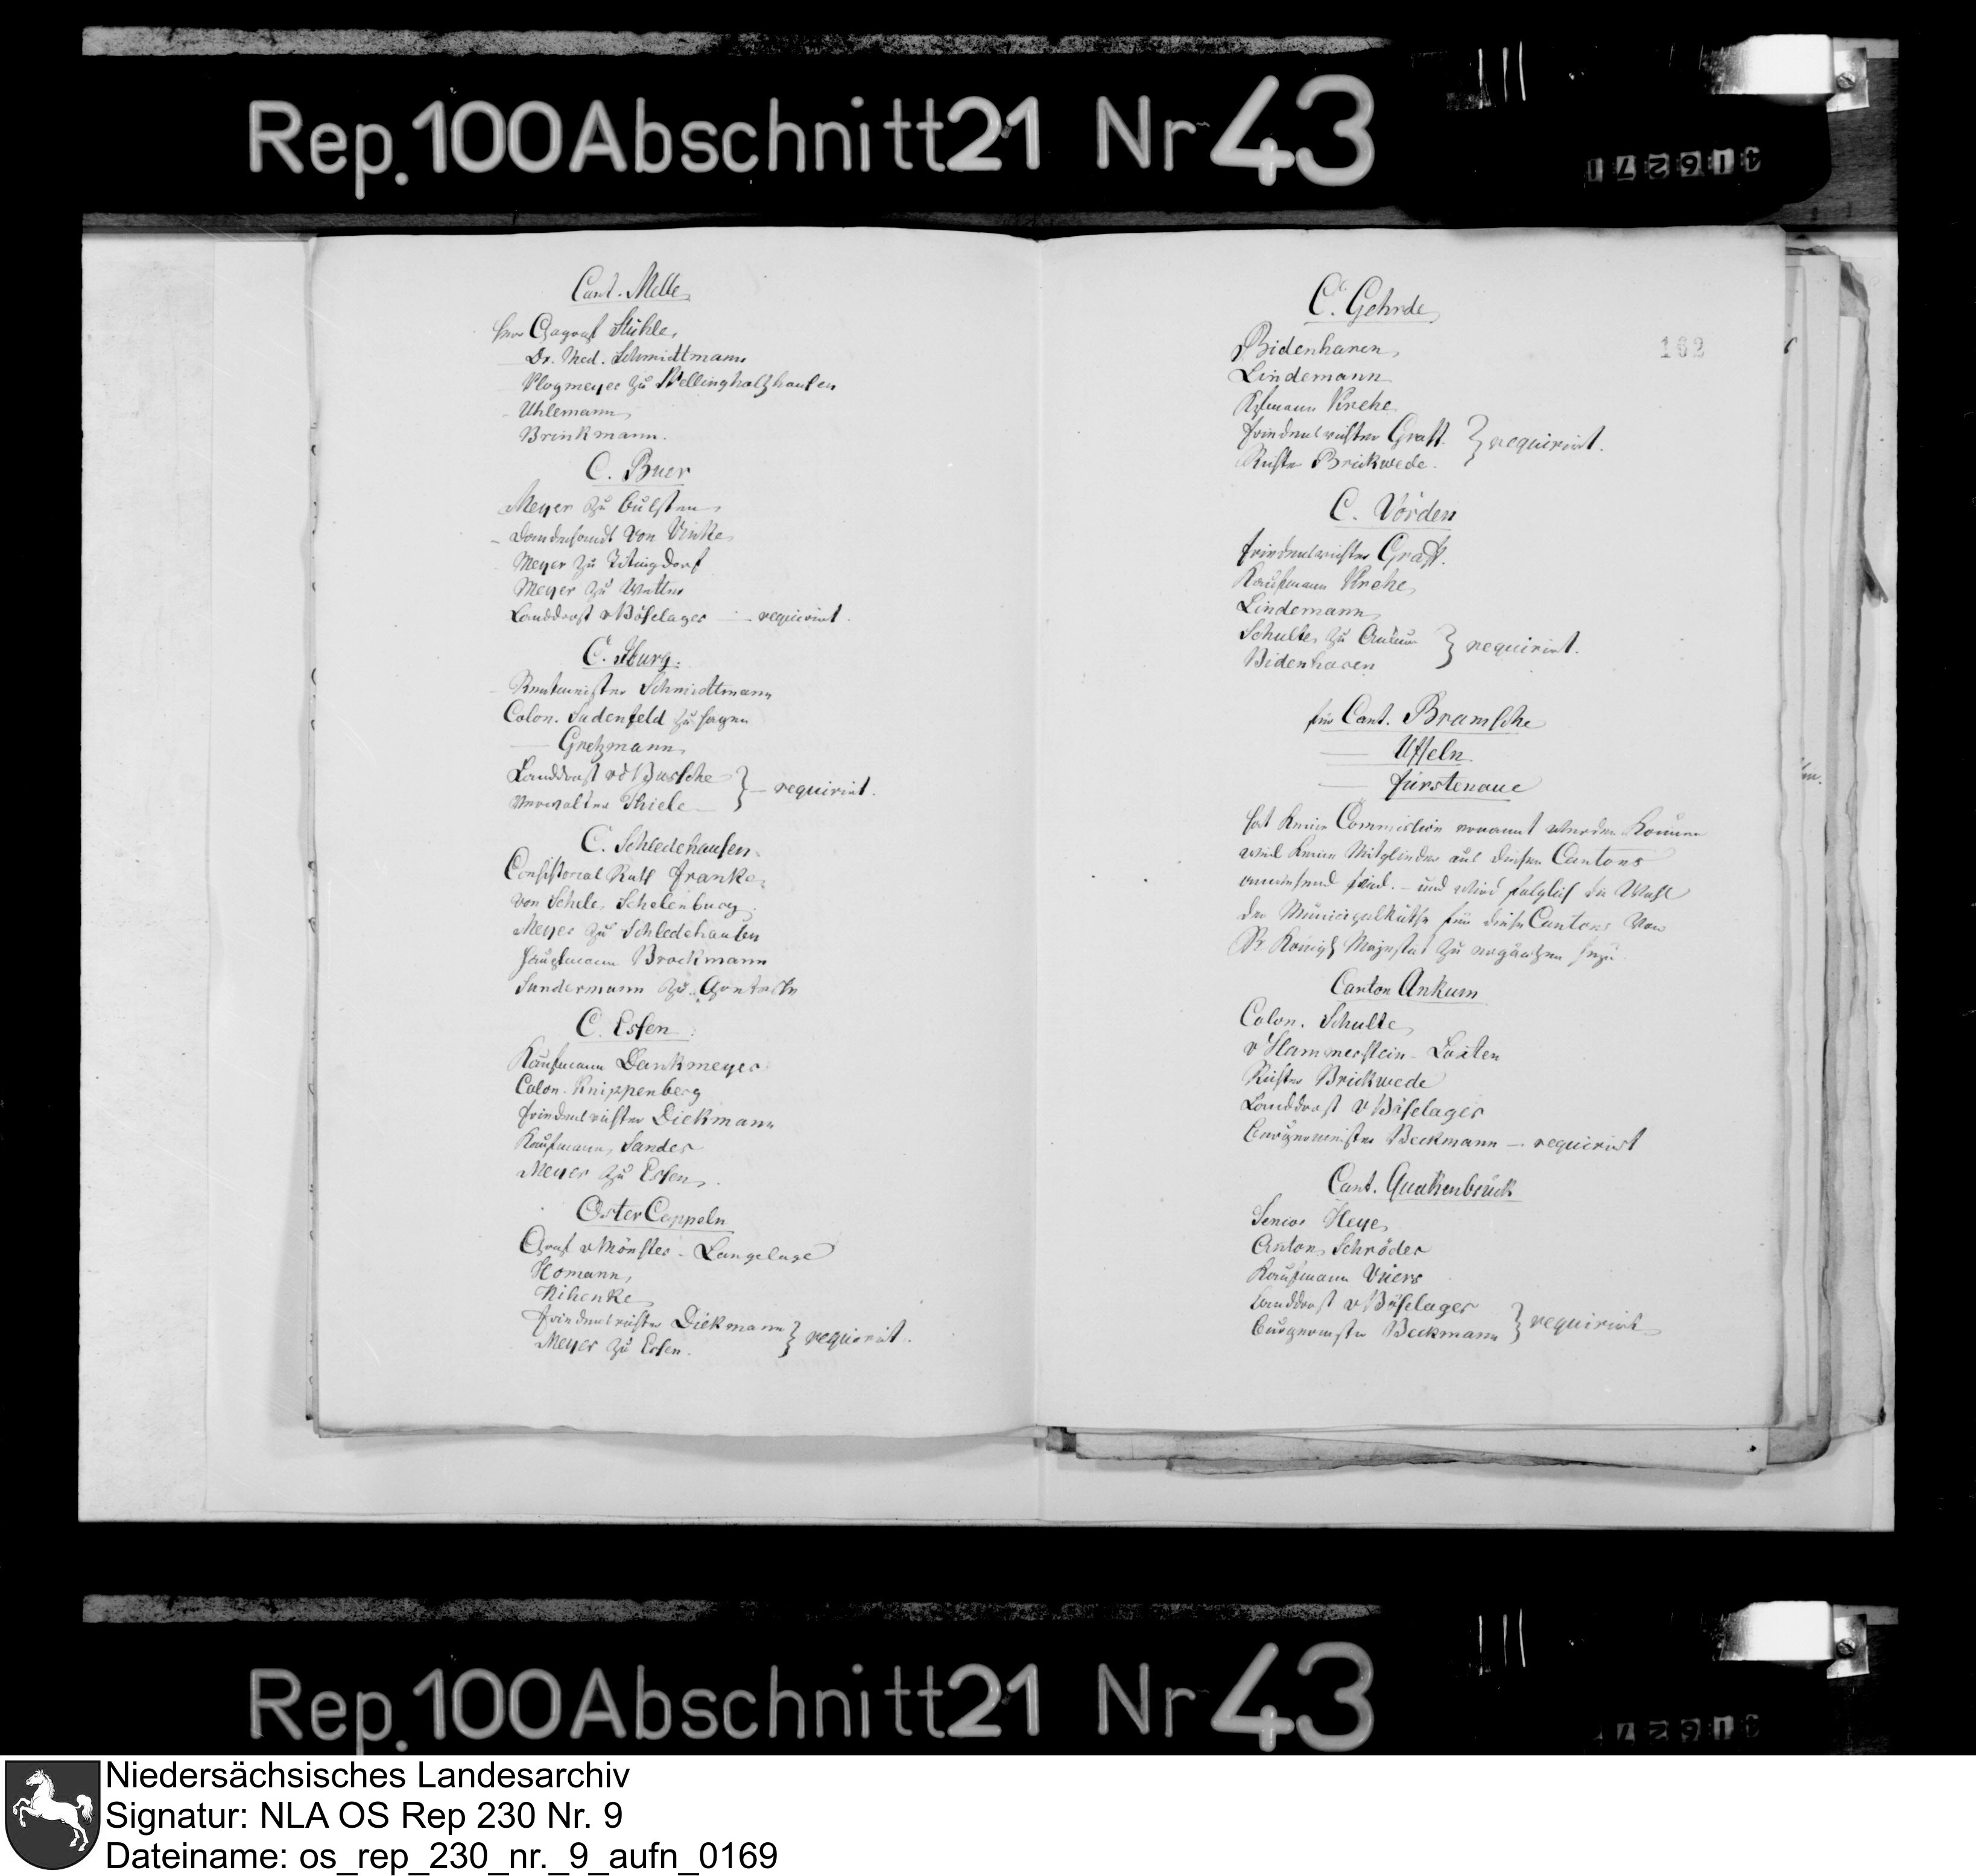 Rep. 100 Abschnitt 21 Nr 43
Cant. Melle
Herr Gograf Stühle,
— Dr. Med. Schmidtmann
— Vlogmeyer zu Wellingholzhausen
— Uhlemann
Brinkmann.
C. Buer
Meyer zu
— von Vinke
Meyer zu
Meyer zu Wetter
Landdrost v Böselager —.— requirirt.
C. Iburg.
— Rentmeister Schmidtmann
Colon. Sudenfeld zu Hagen
— Gretzmann
Landdrost vd Bussche
Verwalter Thiele } — requirirt.
C. Schledehausen
Consistorial Rath Franke.
von Schele, Schelenburg.
Meyer zu Schledehausen
Hauptmann Brockmann
Sundermann zu
C. Essen.
Kaufmann Dankmeyer
Colon. Knippenberg
Friedensrichter Diekmann
Kaufmann Sander
Meyer zu Essen.
Oster Cappeln
Graf v Mönster - Langelage
Homann,
Nihenke
Friedensrichter Diekmann
Meyer zu Essen. } requirirt.
C. Gehrde
102
Bidenharen,
Lindemann
Kfmann Krehe
Friedensrichter Graff.
Richter Brickwede. } requirirt.
C. Vörden
Friedensrichter Graff.
Kaufmann Krehe
Lindemann
Schulte zu
Bidenharen } requirirt.
für Cant. Bramsche
— Uffeln
— Fürstenaue
hat keine Commission ernannt werden können
weil keine Mitglieder aus diesen Cantons
anwesend sind. – und wird folglich die Wahl
der Municipalräthe für diese Cantons von
Sr Königl Majestät zu ergänzen seyn
Canton Ankum
Colon. Schulte
v Hammerstein - Loxten
Richter Brickwede
Landdrost v Böselager
Burgermeister Beckmann —. requirirt
Cant. Quakenbrück
Senior Heye
Anton Schröder
Kaufmann
Landdrost v Böselager
Burgermster Beckmann } requirirt
Rep. 100 Abschnitt 21 Nr 43
Niedersächsisches Landesarchiv
Signatur: NLA OS Rep 230 Nr. 9
Dateiname: os_rep_230_nr._9_aufn_0169